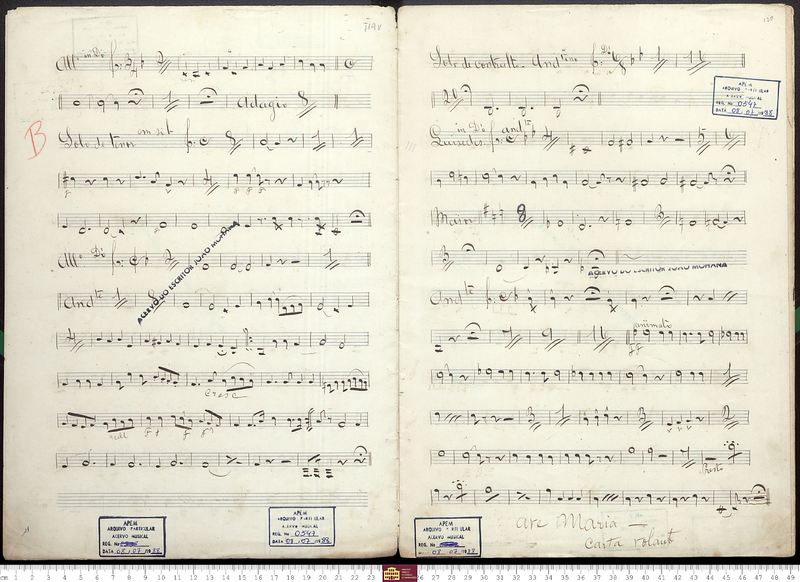 All.º in Dó
Adagio 8
B Solo de tenor em sib
All.º Dó
And.te
ACERVO DO ESCRITOR JOÃO MOHANA
Cresc
rall
APEM
ARQUIVO PARTICULAR
ACERVO MUSICAL
REG. No
DATA 08.07.1988
APEM
ARQUIVO PARTICULAR
ACERVO MUSICAL
REG. No 0547
DATA 08.07.1988
Solo de contralto And.tino Dó
20
APEM
ARQUIVO PARTICULAR
ACERVO MUSICAL
REG. No 0547
DATA 08.07.1988
in Dó and.te
Maior
ACERVO DO ESCRITOR JOÃO MOHANA
And.te
animato
ff
Presto
Ave Maria —
Carta volant
APEM
ARQUIVO PARTICULAR
ACERVO MUSICAL
REG. No
08.07.1988